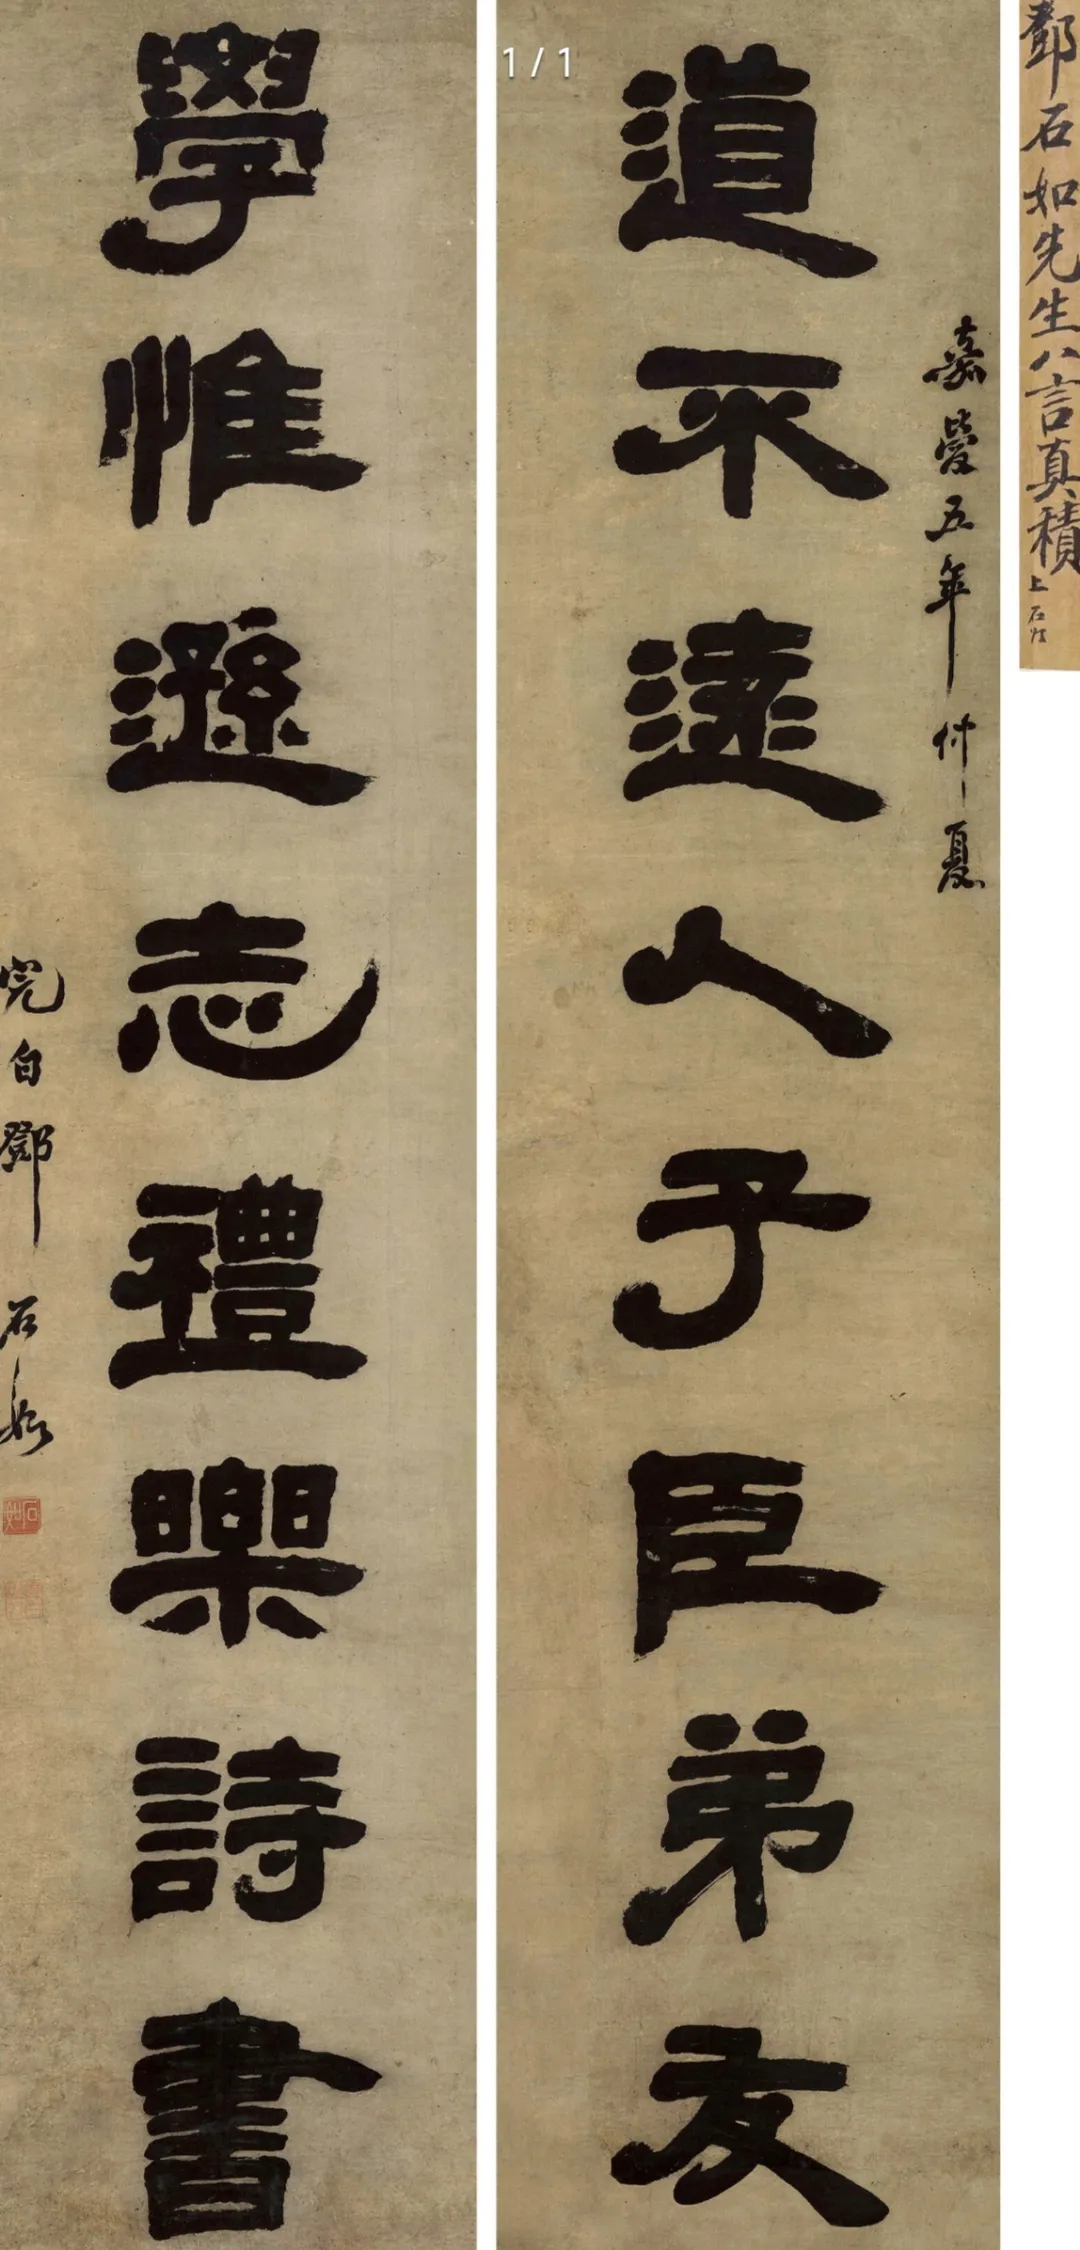 鄧石如先生八言真積上石ㄓ
嘉慶五年仲夏
道不遠人子臣弟友
學惟遜志禮樂詩書
完白鄧石如
石如
1/1